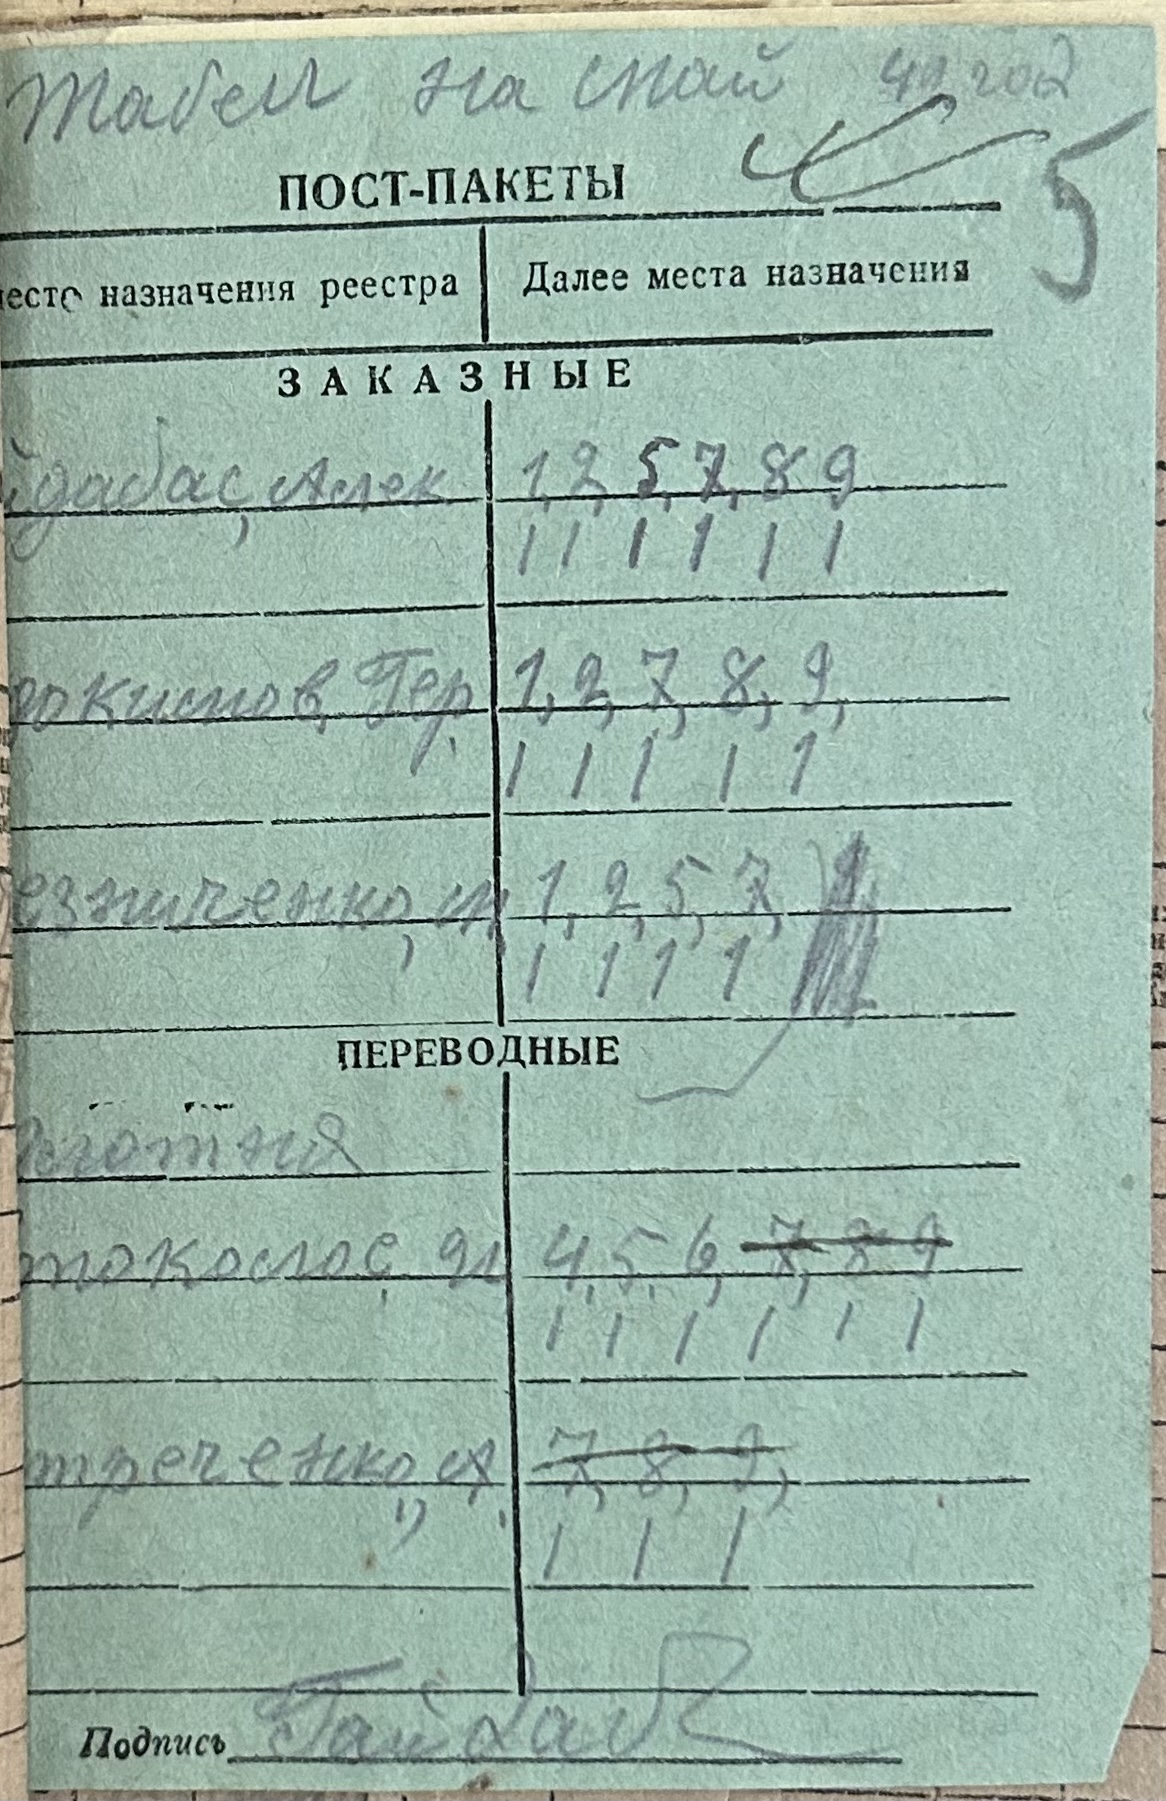 Табел на май 49 год
5
ПОСТ-ПАКЕТЫ
есто назначения реестра Далее места назначения
ЗАКАЗНЫЕ
йдабас, Алек 1, 2, 5, 7, 8 9
1 1 1 1 1 1
окимов, Гер. 1, 2, 7, 8, 9,
1 1 1 1 1
езниченко, м 1, 2, 5, 7,
1 1 1 1
ПЕРЕВОДНЫЕ
4, 5, 6, 7, 8 9
1 1 1 1 1 1
треченко, А. 7, 8, 9,
1 1 1
Подпись Гайдаб